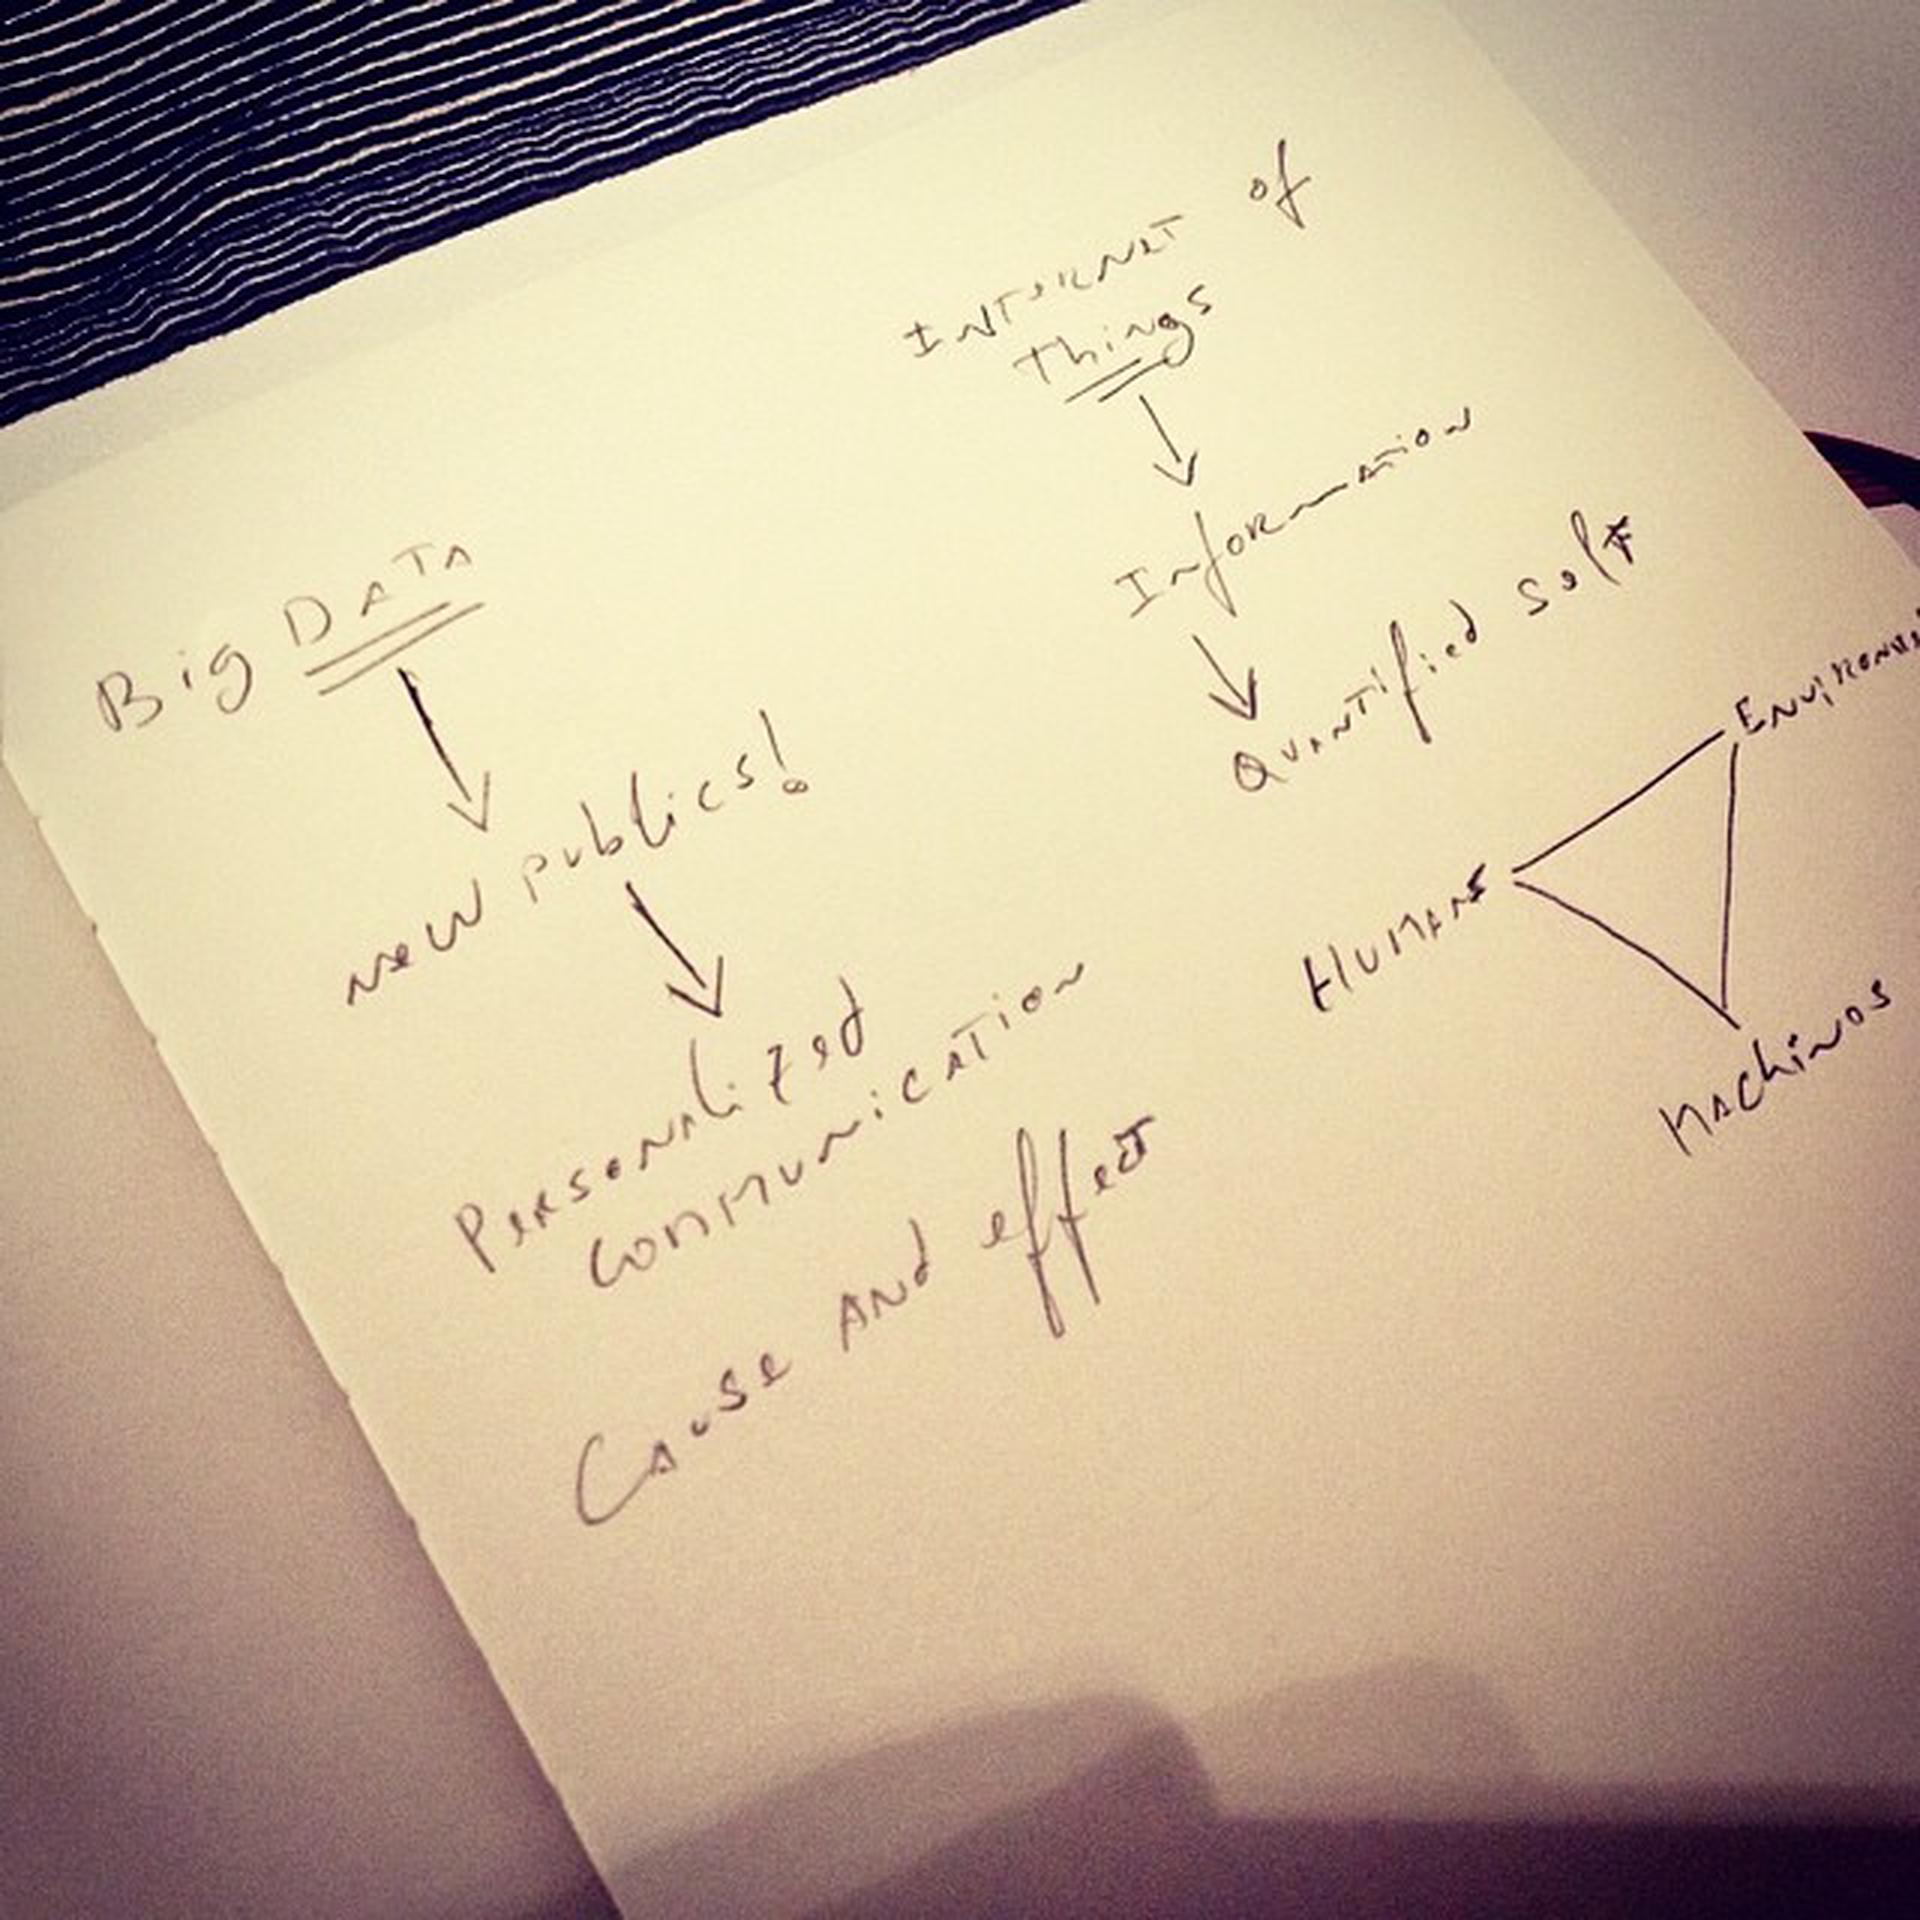 Big DATA
new publics!
Personalized
communication
Cause And effect
INTERNET of
things
Information
Quantified self
Humans
Machines